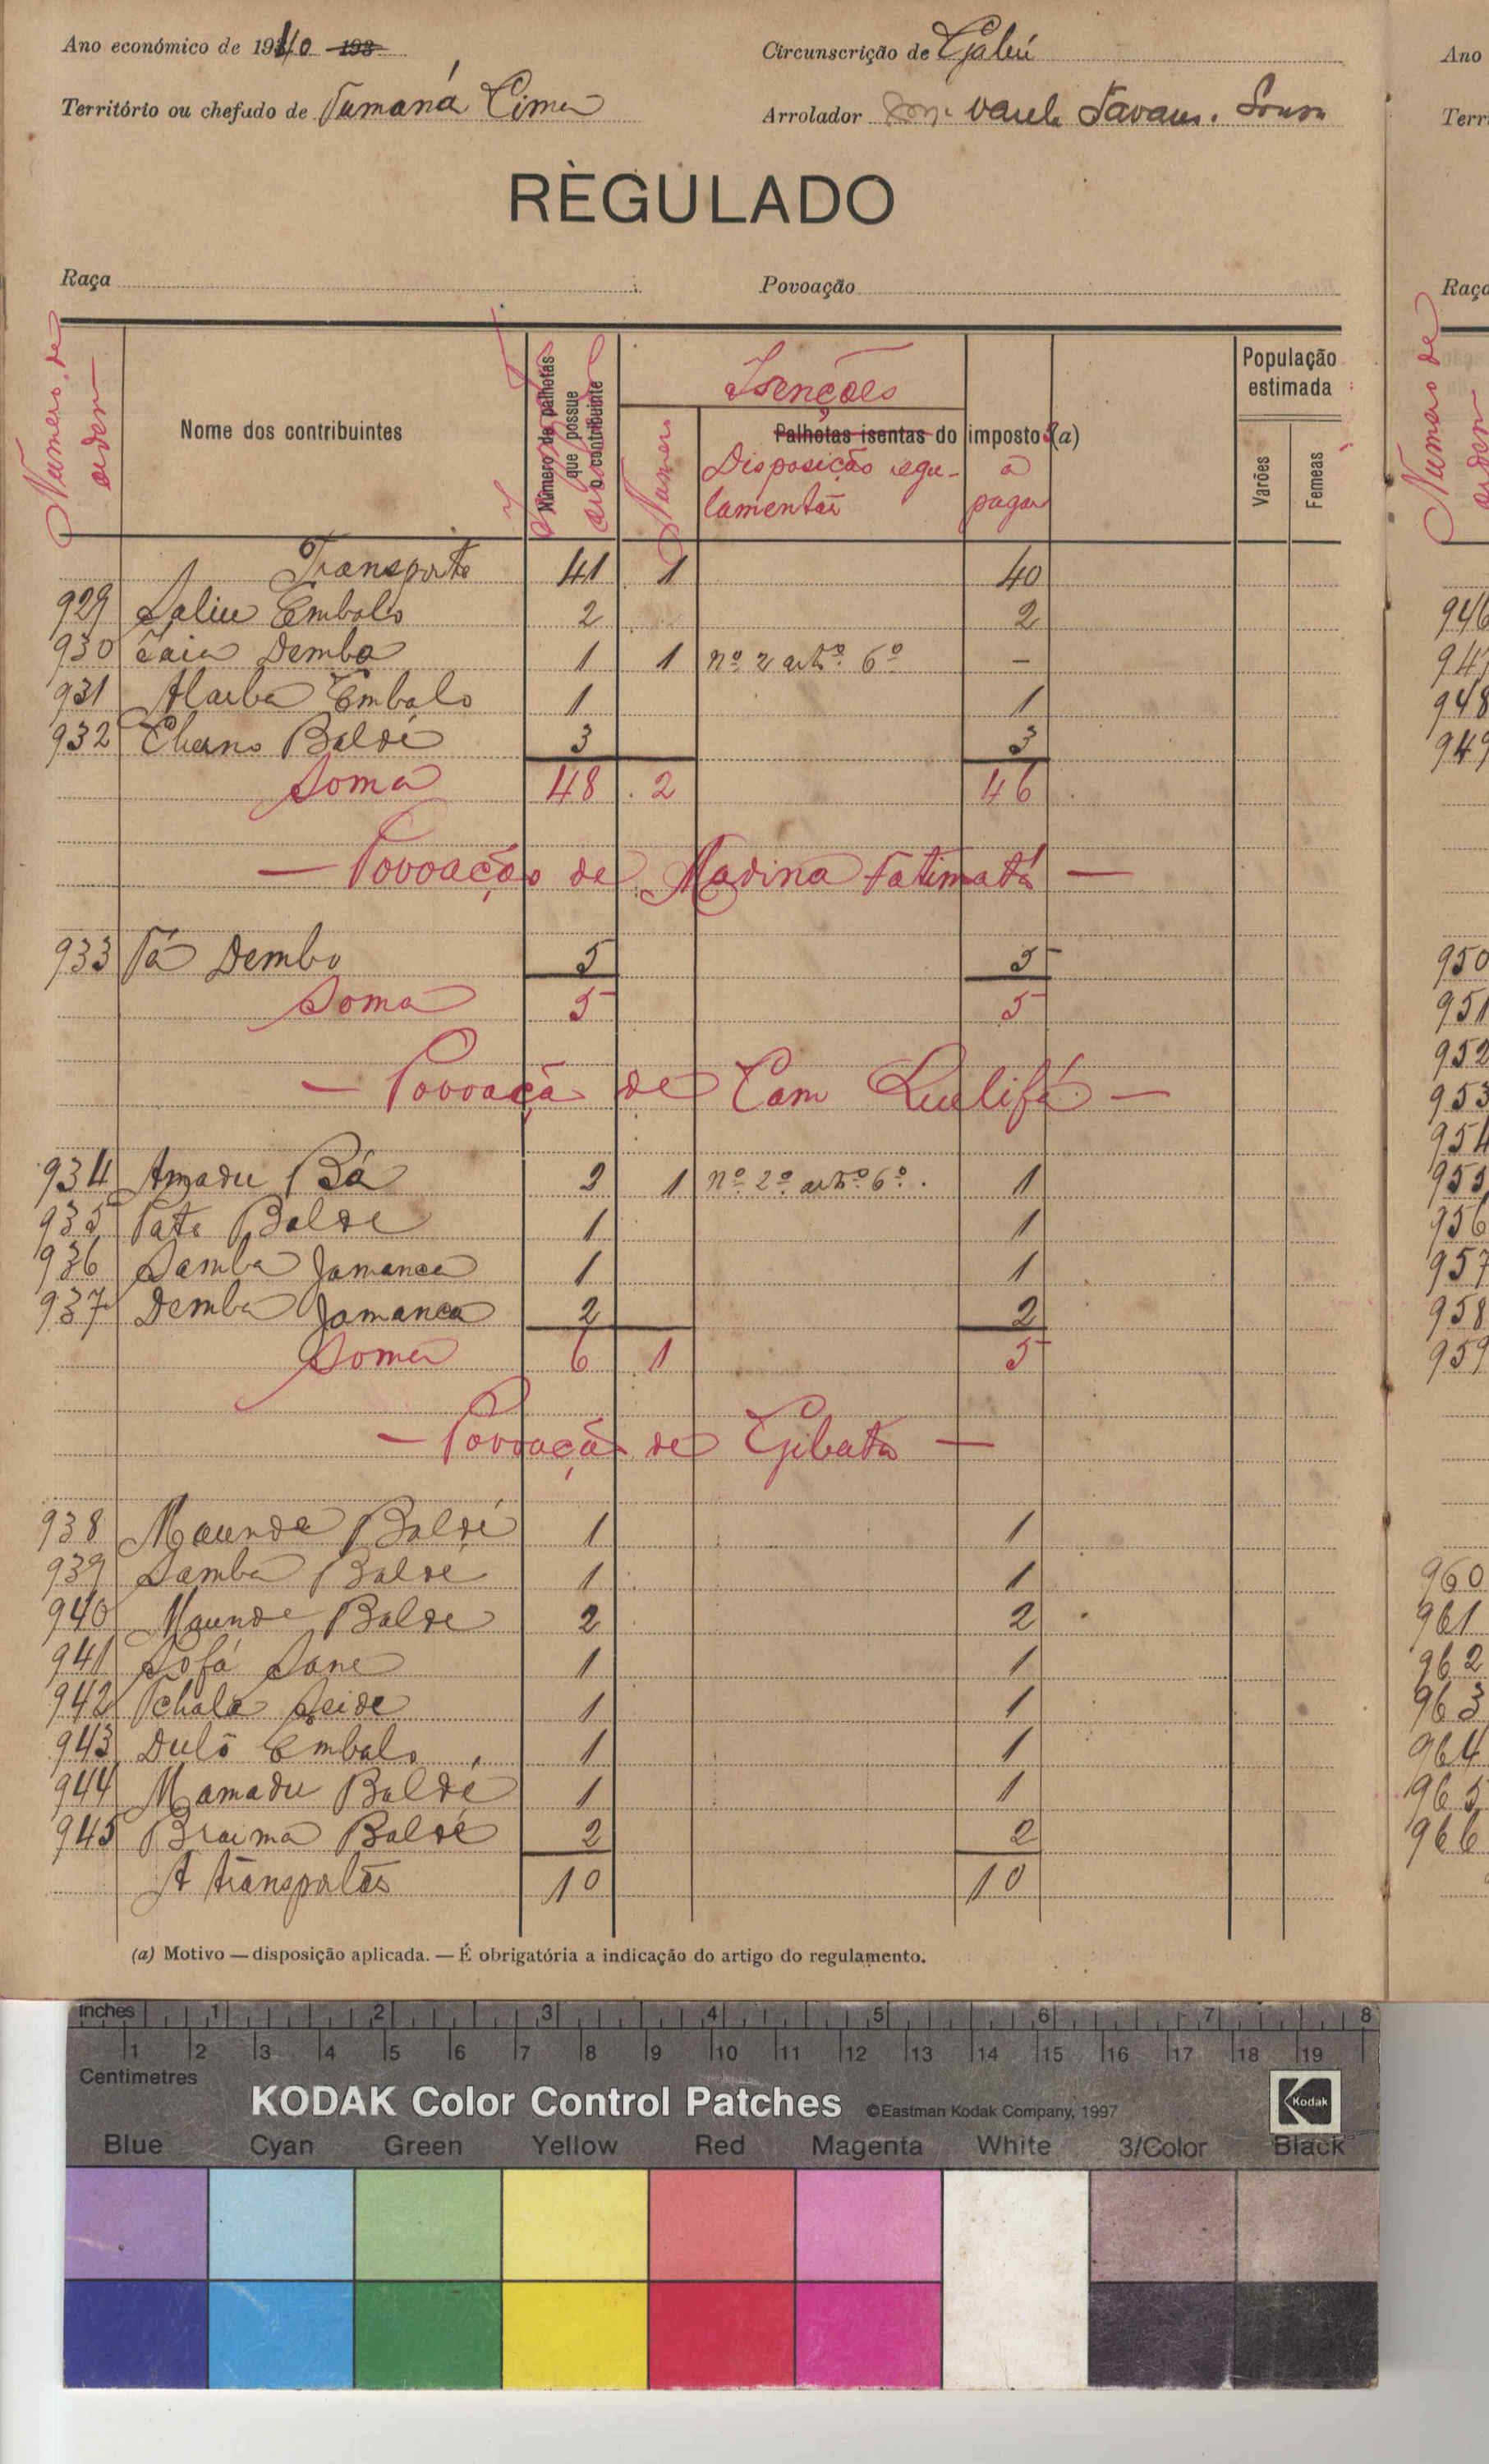 Ano económico de 1940 193
Circunscrição de Gabú
Território ou chefado de Tumaná Cima
Arrolador Varela Tavares. Sousa
REGULADO
Raça
Povoação
Numero de ordem
Nome dos contribuintes
Número de palhotas que possue o contribuinte
Isenções
Numero
Palhotas isentas do imposto (a)
Disposição regulamentar
a pagar
População estimada
Varões
Femeas
Transporte 41 1 40
929 Saliu Embalo 2 2
930 Demba 1 1 nº 2 artº 6º –
931 Embalo 1 1
932 Cherno Baldé 3 3
Soma 48 2 46
— Povoação de Madina Fatimatá —
933 Pá Dembo 5 5
Soma 5 5
— Povoaçã de Cam Quelifá —
934 Amadu Bá 2 1 nº 2º artº 6º. 1
935 Pate Balde 1 1
936 Samba Jamanca 1 1
937 Demba Jamanca 2 2
Soma 6 1 5
— Povoaçã de Gibata —
938 Maunde Baldé 1 1
939 Samba Baldé 1 1
940 Maunde Balde 2 2
941 Sofá Sane 1 1
942 Tchala Seide 1 1
943 Duló Embalo 1 1
944 Mamadu Baldé 1 1
945 Braima Baldé 2 2
A transportar 10 10
(a) Motivo — disposição aplicada. — É obrigatória a indicação do artigo do regulamento.
Ano
Terr
Raça
Numero de ordem
946
947
948
949
950
951
952
953
954
955
956
957
958
959
960
961
962
963
964
965
966
inches 1 2 3 4 5 6 7 8
1 2 3 4 5 6 7 8 9 10 11 12 13 14 15 16 17 18 19
Centimetres
KODAK Color Control Patches ©Eastman Kodak Company, 1997
Kodak
Blue Cyan Green Yellow Red Magenta White 3/Color Black